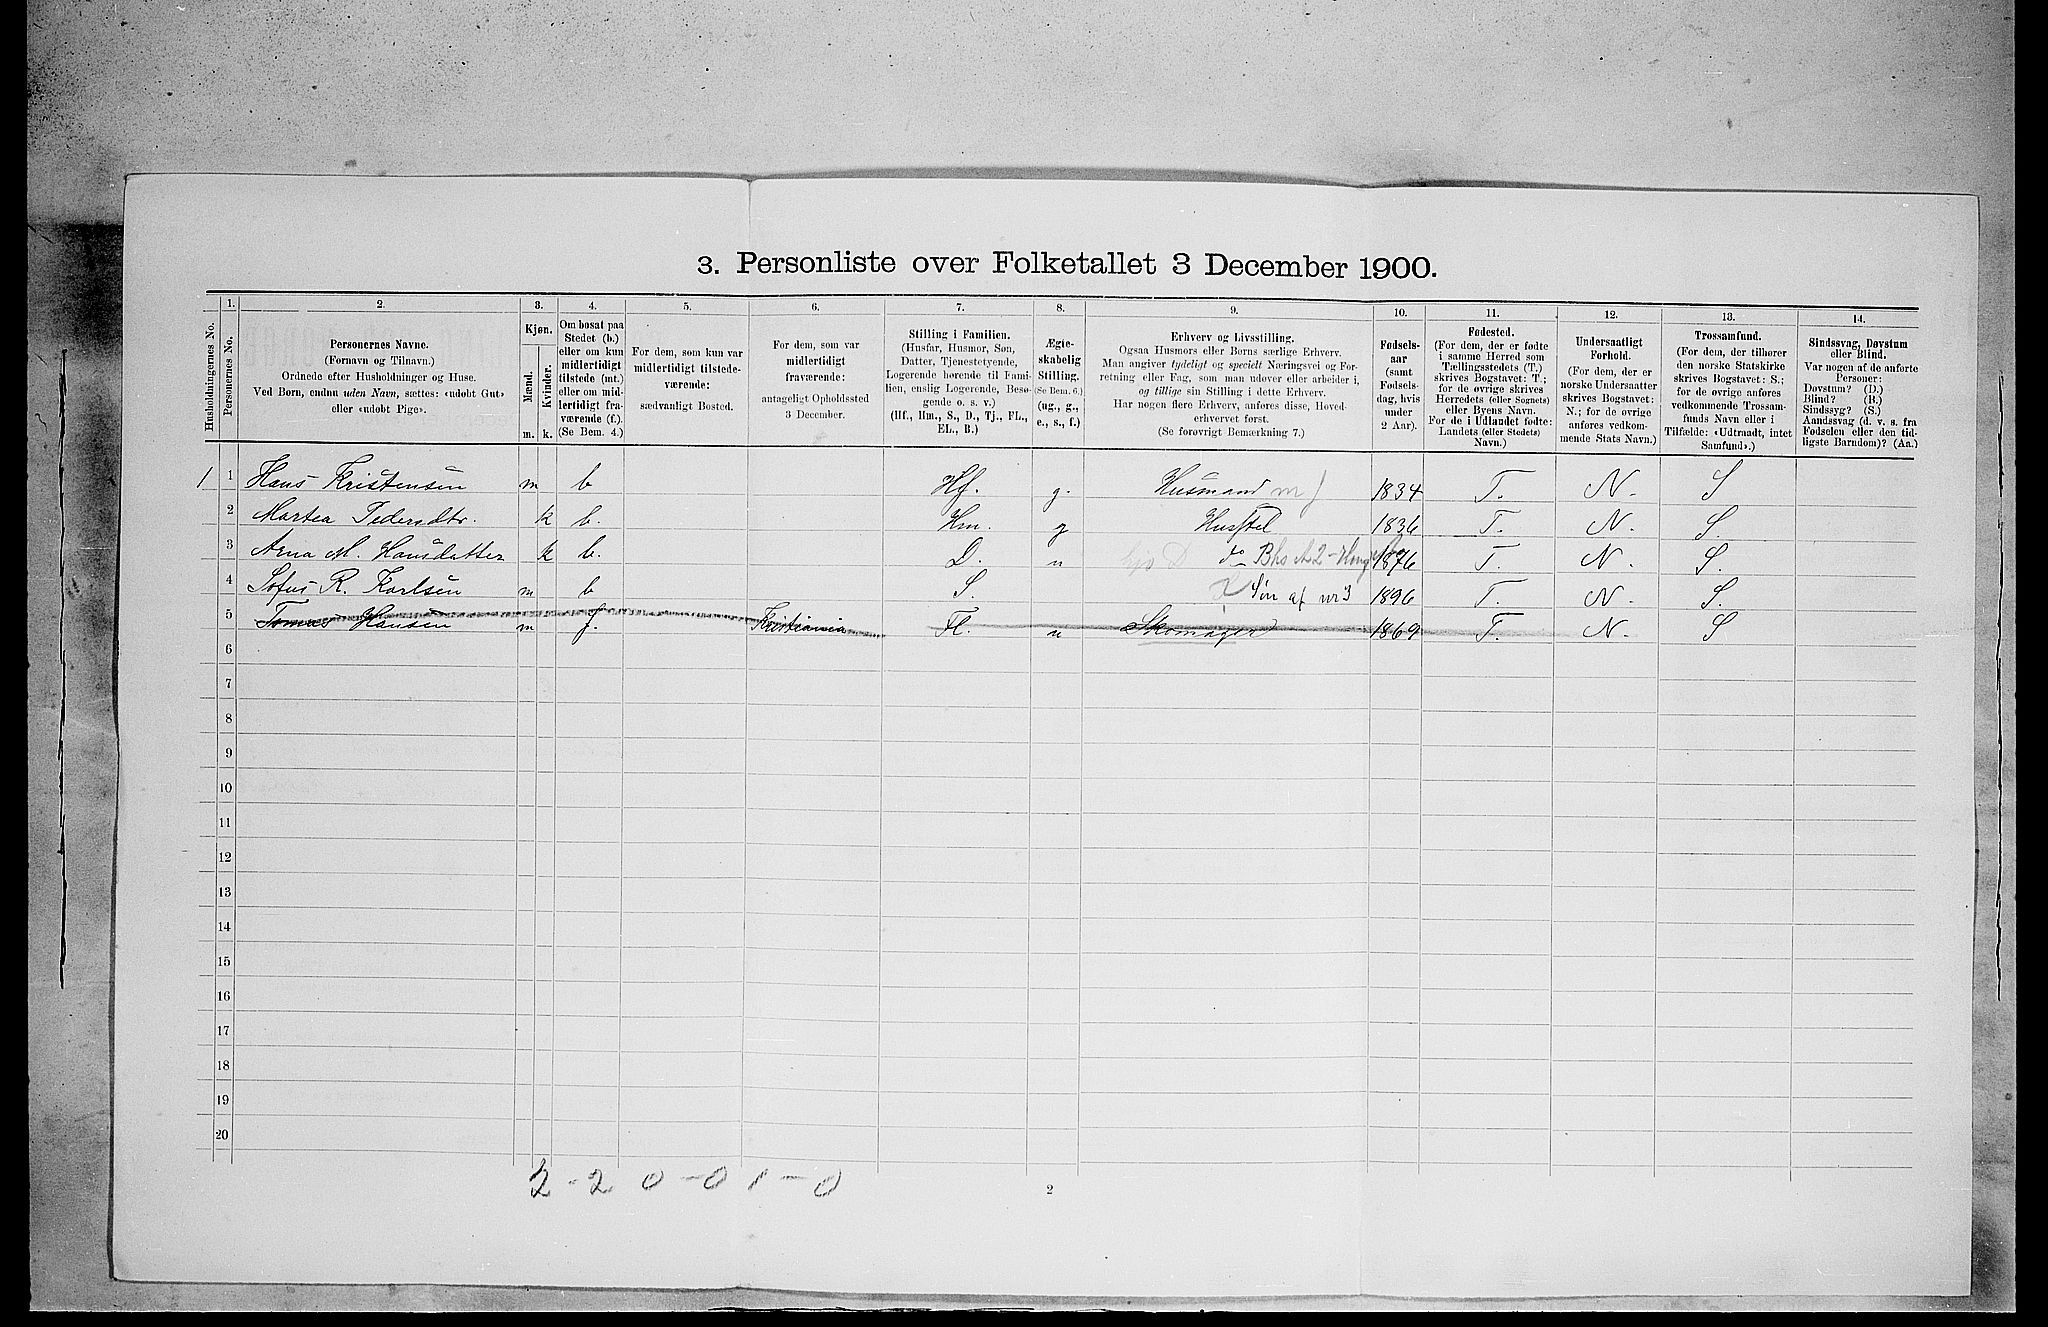 3. Personliste over Folketallet 3 December 1900.
1. 2. 3. 4. 5. 6. 7. 8. 9. 10. 11. 12. 13. 14.
Husholdningernes No.
Personernes No.
Personernes Navne.
(Fornavn og Tilnavn.)
Ordnede efter Husholdninger og Huse.
Ved Børn, endnu uden Navn, sættes: «udøbt Gut»
eller «udøbt Pige».
Kjøn.
Mænd.
Kvinder.
m. k.
Om bosat paa
Stedet (b.)
eller om kun
midlertidigt
tilstede (mt.)
eller om mid-
lertidigt fra-
værende (f.)
(Se Bem. 4.)
For dem, som kun var
midlertidigt tilstede-
værende:
sædvanligt Bosted.
For dem, som var
midlertidigt
fraværende:
antageligt Opholdssted
3 December.
Stilling i Familien.
(Husfar, Husmor, Søn,
Datter, Tjenestetyende,
Logerende hørende til Fami-
lien, enslig Logerende, Besø-
gende o. s. v.)
(Hf., Hm., S., D., Tj., FL.,
EL., B.)
Ægte-
skabelig
Stilling.
(Se Bem. 6.)
(ug., g.,
e., s., f.)
Erhverv og Livsstilling.
Ogsaa Husmors eller Børns særlige Erhverv.
Man angiver tydeligt og specielt Næringsvei og For-
retning eller Fag, som man udøver eller arbeider i,
og tillige sin Stilling i dette Erhverv.
Har nogen flere Erhverv, anføres disse, Hoved-
erhvervet først.
(Se forøvrigt Bemærkning 7.)
Fødsels-
aar
(samt
Fødsels-
dag, hvis
under
2 Aar).
Fødested.
(For dem, der er fødte
i samme Herred som
Tællingsstedets (T.)
skrives Bogstavet: T.;
for de øvrige skrives
Herredets (eller Sognets)
eller Byens Navn.
For de i Udlandet fødte:
Landets (eller Stedets)
Navn.)
Undersaatligt
Forhold.
(For dem, der er
norske Undersaatter
skrives Bogstavet:
N.; for de øvrige
anføres vedkom-
mende Stats Navn.)
Trossamfund.
(For dem, der tilhører
den norske Statskirke
skrives Bogstavet: S.;
for de øvrige anføres
vedkommende Trossam-
funds Navn eller i
Tilfælde: «Udtraadt, intet
Samfund».)
Sindssvag, Døvstum
eller Blind.
Var nogen af de anførte
Personer:
Døvstum? (D.)
Blind? (B.)
Sindssyg? (S.)
Aandssvag (d. v. s. fra
Fødselen eller den tid-
ligste Barndom)? (Aa.)
1 1 Hans Kristensen m b Hf. g. Husmand m j 1834 T. N. S
2 Martea Pedersdtr. k b. Hm. g Husstel 1836 T. N. S.
3 Arna M. Hansdatter k b. D. u do 1876 T. N. S.
4 Sofus R. Karlsen m b S. Søn af nr 3 1896 T. N. S.
5 Tomas Hansen m f. Kristiania Fl. u Skomager 1869 T. N. S
6
7
8
9
10
11
12
13
14
15
16
17
18
19
20
2 - 2 0 - 0 1 - 0
2